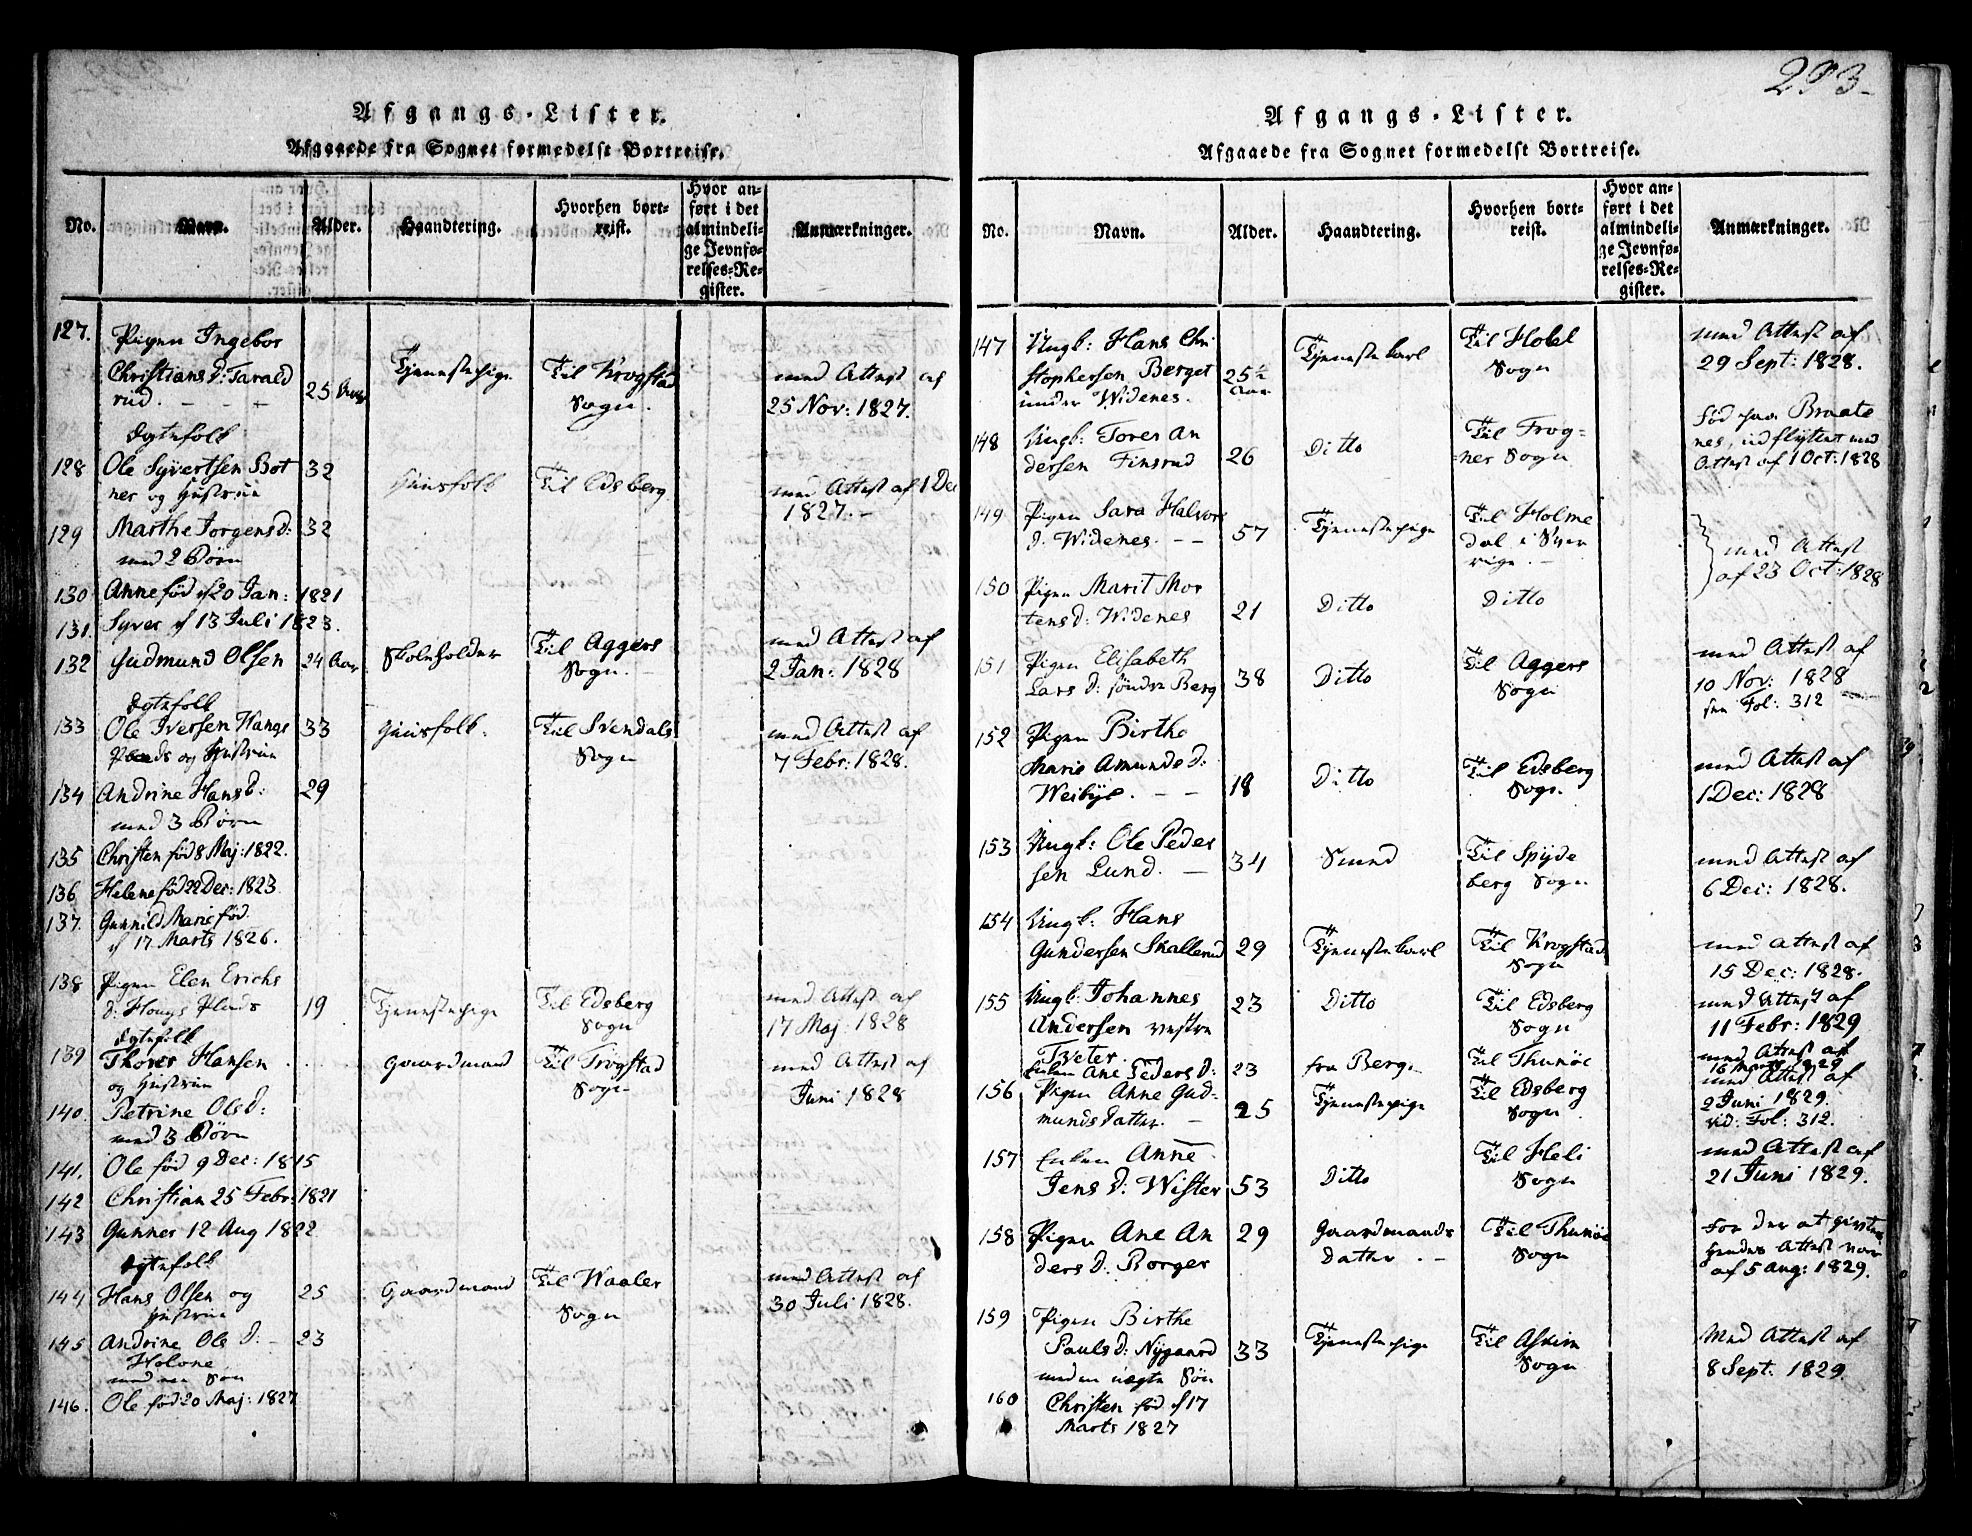 Afgangs-Lister.
Afgaaede fra Sognet formedelst Bortreise.
No. Navn. Alder. Haandtering. Hvorhen bort-
reist. Hvor an-
ført i det
almindeli-
ge Jevnfø-
relses-Re-
gister. Anmærkninger.
127. Pigen Ingebor
Christians d: Tarald
rud. 25 Aar Tjenestepige Til Krogstad
Sogn. med Attest af
25 Nov: 1827.
Egtefolk
128 Ole Syvertsen Bot
ner og Hustrue 32 Huusfolk Til Edsberg med Attest af 1 Dec
1827.
129 Marthe Jorgensd: 32
med 2 Børn
130 Anne fød d 20 Jan: 1821
131. Syver d 13 Juli 1823.
132 Gudmund Olsen 24 Aar Skoleholder Til Aggers
Sogn. med Attest af
2 Jan: 1828
Egtefolk
133 Ole Iversen Haugs
Plads og Hustrue 33 Huusfolk. Til Svendals
Sogn med Attest af
7 Febr: 1828.
134 Andrine Hans d: 29
med 3 Børn
135 Christen fød 8 Maj: 1822.
136 Helene fød 22 Dec: 1823
137. Gunnild Marie fød
d 17 Marts 1826.
138 Pigen Elen Erichs
d: Hougs Plads 19 Tjenestepige Til Edsberg
Sogn med Attest af
17 Maj: 1828
Egtefolk
139 Thorer Hansen
og Hustrue Gaardmand Til Trøgstad
Sogn med Attest af
Juni 1828
140. Petrine Ole d:
med 3 Børn
141. Ole fød 9 Dec: 1815
142 Christian 25 Febr: 1821
143 Gunner 12 Aug 1822
Egtefolk
144 Hans Olsen og
Hustrue 25 Gaardmand Til Waaler
Sogn med Attest af
30 Juli 1828.
145 Andrine Ole d: 23
Holone
med en Søn
146. Ole fød 20 Maj: 1827
293
Afgangs-Lister.
Afgaaede fra Sognet formedelst Bortreise.
No. Navn. Alder. Haandtering. Hvorhen bort-
reist. Hvor an-
ført i det
almindeli-
ge Jevnfø-
relses-Re-
gister. Anmærkninger.
147 Ungk: Hans Chri
stophersen Berget
under Widenes. 25½
Aar Tjenestekarl Til Hobel
Sogn med Attest af
29 Sept: 1828.
148 Ungk: Torer An
dersen Finsrud 26 Ditto Til Frog-
ner Sogn fød paa Braate
nes, udflyttet med
Attest af 1 Oct: 1828
149 Pigen Sara Halvors
d. Widenes. 57 Tjenestepige Til Holme
dal i Sver
rige. med Attest
af 23 Oct: 1828
150 Pigen Marit Mor
tens d: Widenes 21 Ditto Ditto
151 Pigen Elisabeth
Lars d: søndre Berg 38 Ditto Til Aggers
Sogn med Attest af
10 Nov: 1828
see Fol: 312
152 Pigen Birthe
Marie Amunds d:
Weibye. 18 Ditto Til Edsberg
Sogn. med Attest af
1 Dec: 1828
153 Ungk: Ole Peder
sen Lund. 34 Smed Til Spyde
berg Sogn med Attest af
6 Dec: 1828.
154 Ungk: Hans
Gundersen Skallerud 29 Tjenestekarl Til Krogstad
Sogn med Attest af
15 Dec: 1828.
155 Ungk: Johannes
Andersen vestre
Tveter. 23 Ditto Til Edsberg
Sogn med Attest af
11 Febr: 1829
Enken Ane Peders d: 23 fra Berg. Til Thunøe med Attest af
16 Marts 1829
156 Pigen Anne Gud-
mundsdatter. 25 Tjenestepige Til Edsberg
Sogn med Attest af
2 Juni 1829.
vid: Fol: 312.
157 Enken Anne
Jens d. Wister 53 Ditto Til Heli
Sogn med Attest af
21 Juni 1829.
158 Pigen Ane An
ders d. Borger 29 Gaardmands
Datter. Til Thunøe
Sogn For der at giftes
Hendes Attest var
af 5 aug: 1829.
159 Pigen Birthe
Pauls d: Nygaard
med en uægte Søn 33 Tjenestepige Til Askim
Sogn Med Attest af
8 Sept: 1829.
160 Christen fød d 17
Marts 1827